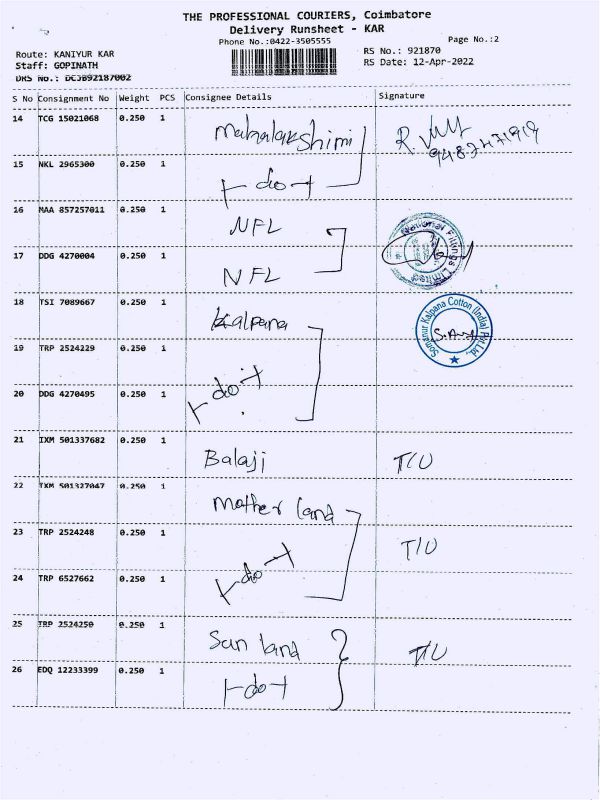 THE PROFESSIONAL COURIERS, Coimbatore
Delivery Runsheet - KAR
Phone No.:0422-3505555
Page No.:2
Route: KANIYUR KAR
RS No.: 921870
Staff: GOPINATH
RS Date: 12-Apr-2022
DRS No.: DCJB92187002
S No Consignment No Weight PCS Consignee Details Signature
14 TCG 15021068 0.250 1 Mahalakshimi R.
15 NKL 2965300 0.250 1 do
16 MAA 857257011 0.250 1 NFL
National Fittings Limited
17 DDG 4270004 0.250 1 NFL
18 TSI 7089667 0.250 1 Kalpana
Somanur Kalpana Cotton (India) Pvt Ltd.
19 TRP 2524229 0.250 1 do
20 DDG 4270495 0.250 1
21 IXM 501337682 0.250 1 Balaji T/U
22 IXM 501327047 0.250 1 Mother land
23 TRP 2524248 0.250 1 T/U
24 TRP 6527662 0.250 1 do
25 TRP 2524250 0.250 1 Sun land T/U
26 EDQ 12233399 0.250 1 do